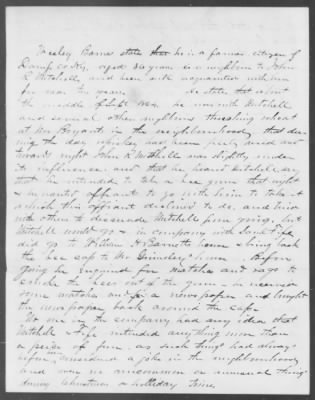 Wesley Barnes states that he is a farmer citizen of
Camp co, aged 36 years is a neighbor to John
R Mitchell, and been with acquainted with him
for near ten years. He states that about
the middle of Sept 186 he was with Mitchell
and several other neighbors threshing wheat
at Mr Bryants in the neighborhood, that dur-
ing the day whiskey had been freely used and
towards night John R Mitchell was slightly under
its influence and that he heard Mitchell say
that he intended to take a bee gum that night
& wanted affiant to go with him to take it
which this affiant declined to do, and tried
with others to dissuade Mitchell from going, but
Mitchell would go & in company with Fife
did go to William H Barnetts house & bring back
the bee cap to Mr Grimsleys house. Before
going he enquired for matches and rags to
smoke the bees out of the gum & received
some matches and a newspaper and brought
the newspaper back around the cap.
No one in the company had any idea that
Mitchell & Fife intended anything more than
a peice of fun, as such things had always
before considered a joke in the neighborhood
and were no uncommon or unusual thing
during Christmas or holleday times